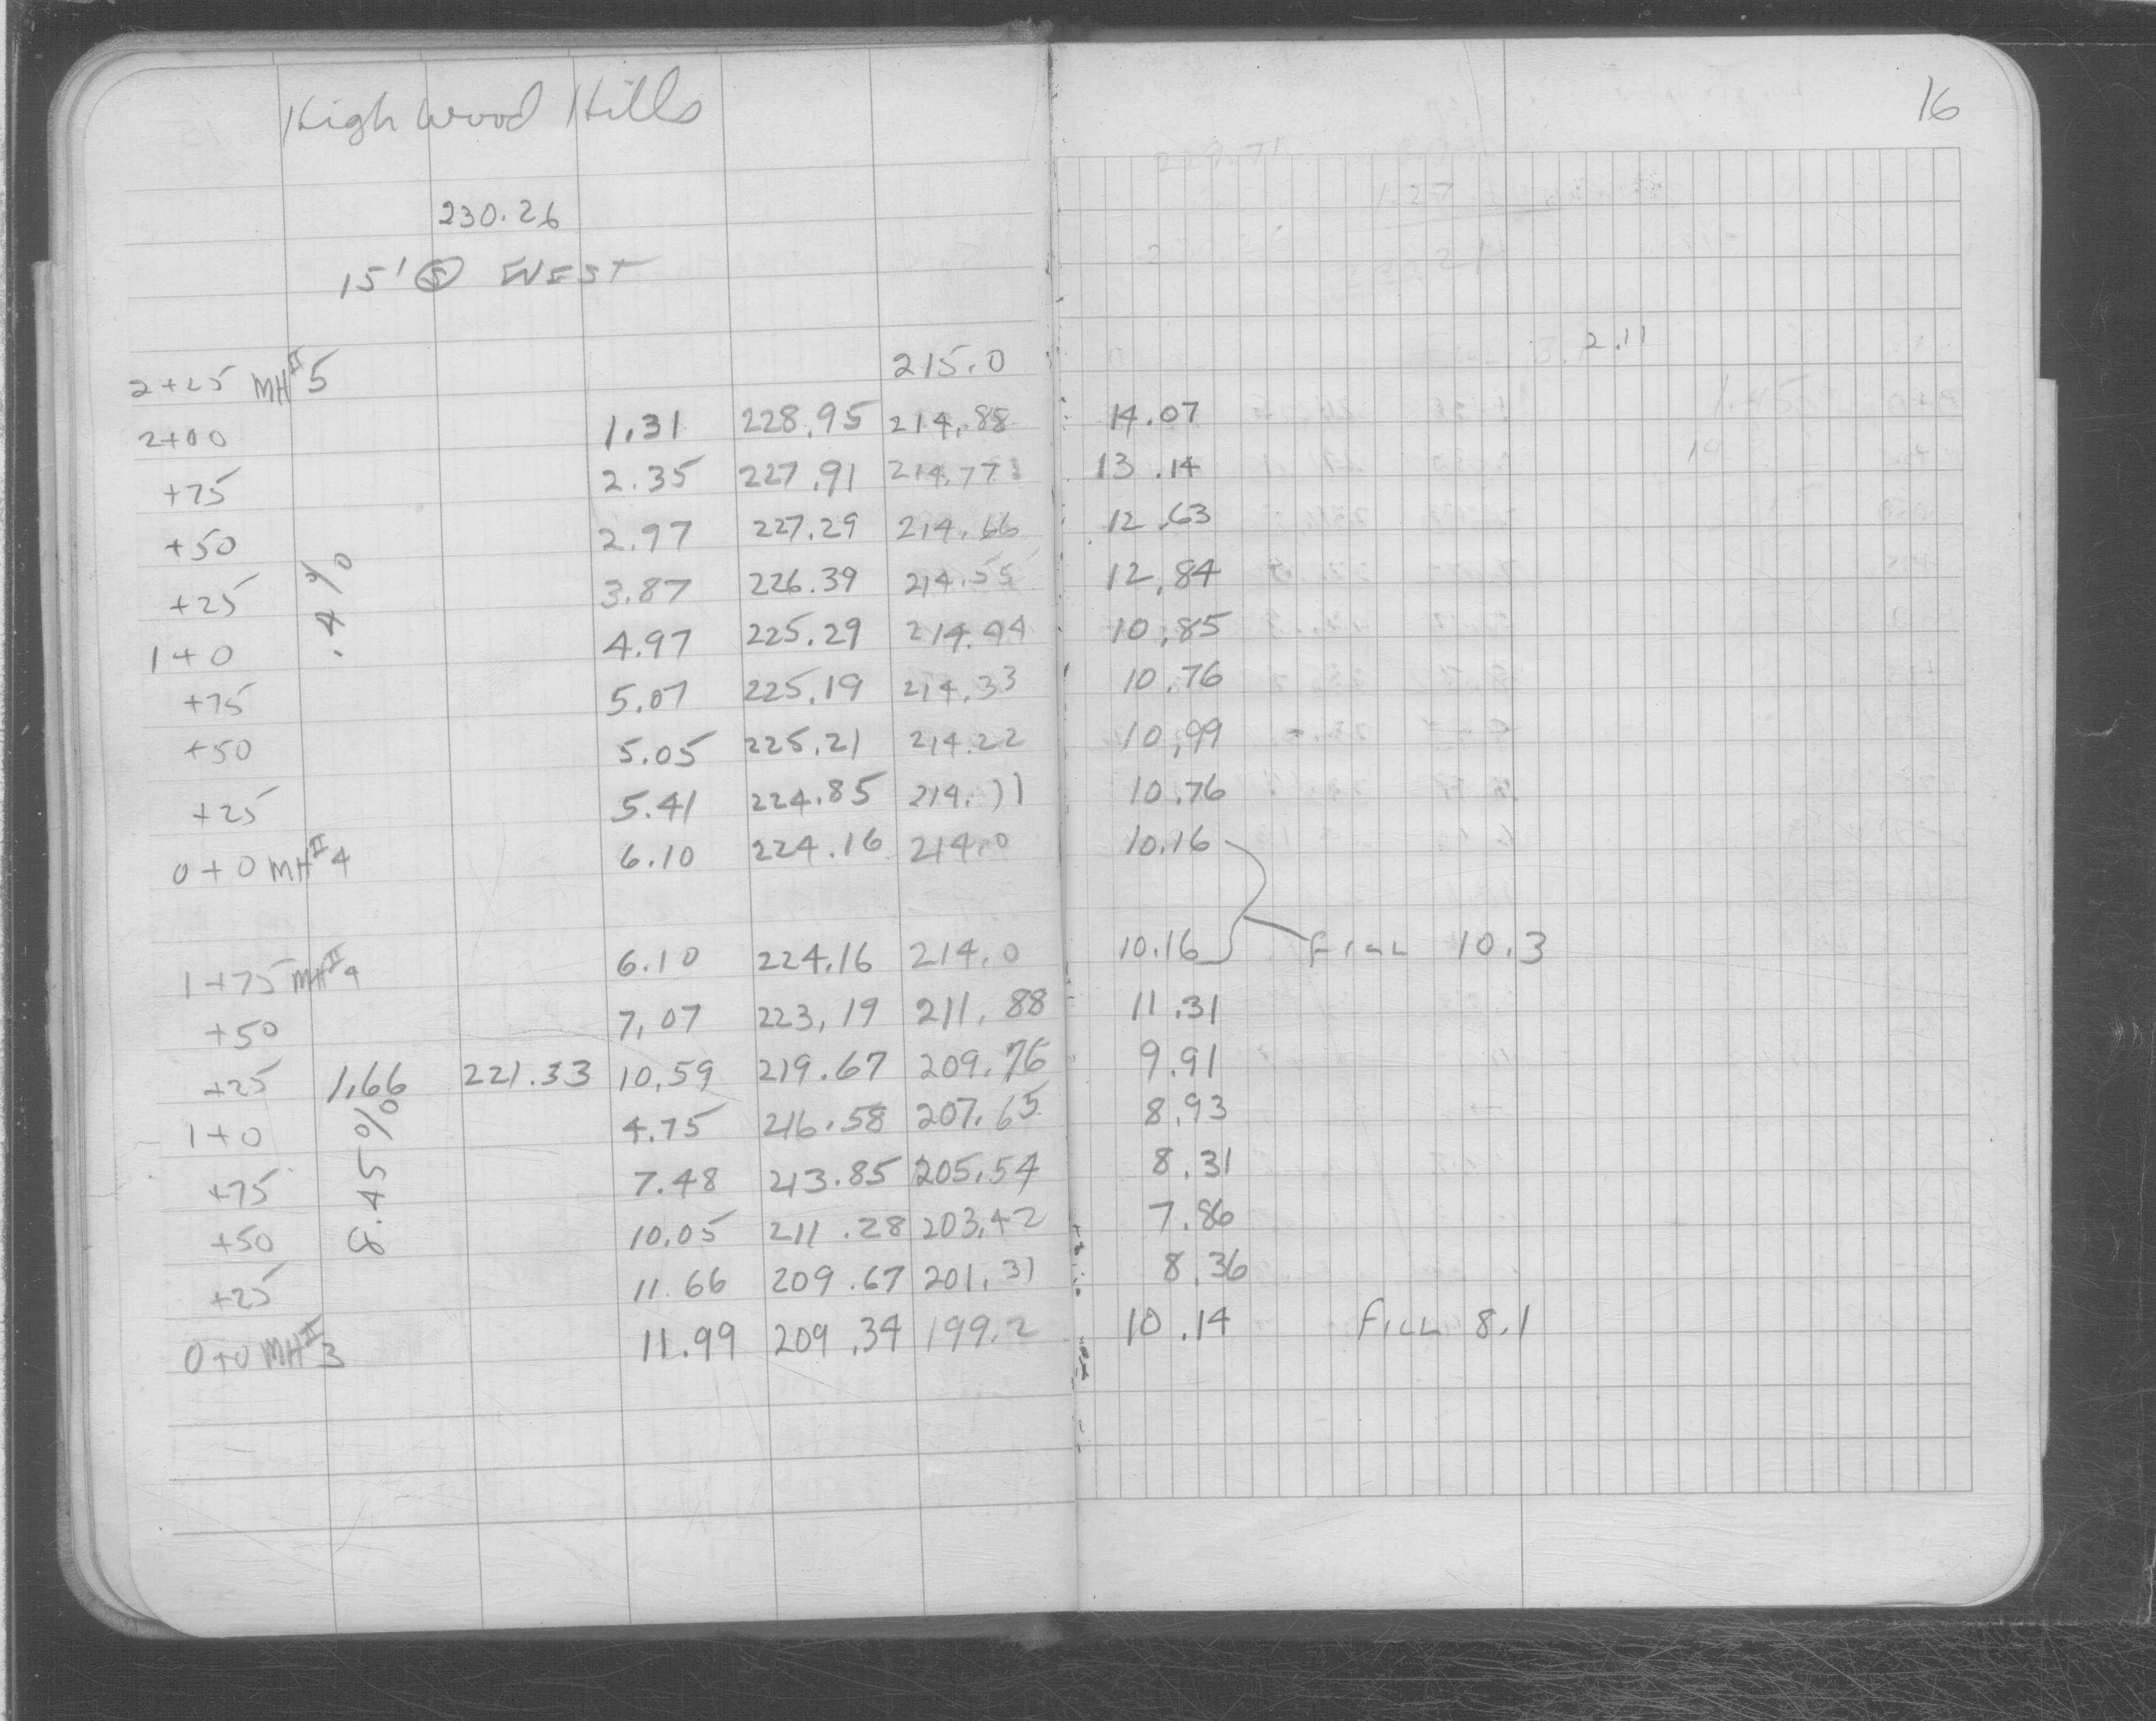 High Wood Hills
16
230.26
15' Ⓢ WEST
2.11
2+25 MH#5 215.0
2+00 1.31 228.95 214.88 14.07
+75 2.35 227.91 214.77 13.14
+50 2.97 227.29 214.66 12.63
+25 3.87 226.39 214.55 12.84
.4%
1+0 4.97 225.29 214.44 10.85
+75 5.07 225.19 214.33 10.76
+50 5.05 225.21 214.22 10.99
+25 5.41 224.85 214.11 10.76
0+0 MH#4 6.10 224.16 214.0 10.16
1+75 MH#4 6.10 224.16 214.0 10.16 FILL 10.3
+50 7.07 223.19 211.88 11.31
+25 1.66 221.33 10.59 219.67 209.76 9.91
1+0 4.75 216.58 207.65 8.93
8.45%
+75 7.48 213.85 205.54 8.31
+50 10.05 211.28 203.42 7.86
+25 11.66 209.67 201.31 8.36
0+0 MH#3 11.99 209.34 199.2 10.14 FILL 8.1